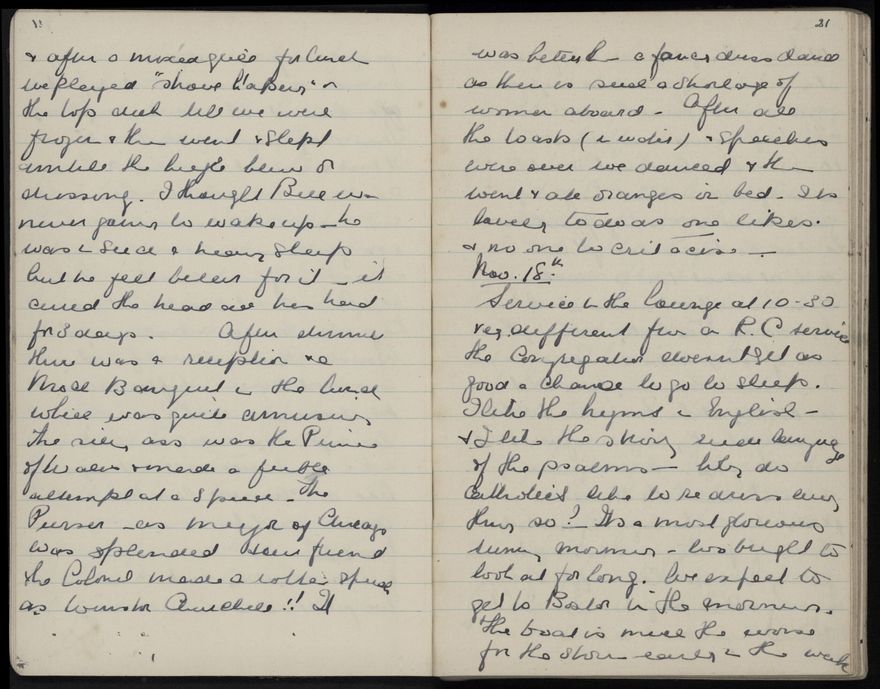 21
& after a
we played "shove ha'penny" on
the top deck till we were
frozen & then went & slept
until the bugle blew for
dressing. I thought Bill was
never going to wake up – he
was in such a heavy sleep
but he felt better for it – it
cured the head ache he's had
for 3 days. After dinner
there was a reception & a
Mock Banquet in the lounge
which was quite amusing
The silly ass was the Prince
of Wales & made a feeble
attempt at a Speech. The
Purser – as mayor of Chicago
was splendid & our friend
the Colonel made a rotten speech
as Winston Churchill!! It
was better than a fancy dress dance
as there is such a shortage of
women aboard. After all
the toasts (in water) & speeches
were over we danced & then
went & ate oranges in bed. It's
lovely to do as one likes.
& no one to criticise –
Nov. 18th
Service in the lounge at 10-30
very different from a R.C service
the congregation doesn't get as
good a chance to go to sleep.
I like the hymns in English –
& I like the strong language
of the psalms – Why do
Catholics like to
things so? – It's a most glorious
sunny morning – too bright to
look at for long. We expect to
get to Boston in the morning.
The boat is much the worse
for the storm earlier in the week